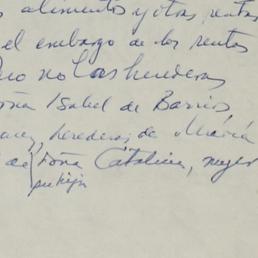 alimentos y otras rentas
el embargo de las rentas
que no los herederos
doña Isabel de Barrios
herederos de María
de doña Catalina, mujer
su hija